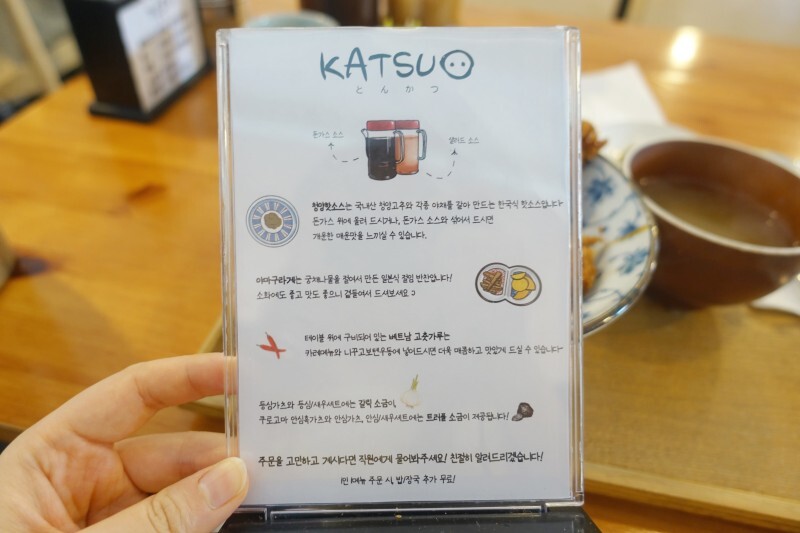 KATSUO
とんかつ
돈가스 소스
샐러드 소스
청양핫소스는 국내산 청양고추와 각종 야채를 갈아 만드는 한국식 핫소스입니다~
돈가스 위에 올려 드시거나, 돈가스 소스와 섞어서 드시면
개운한 매운맛을 느끼실 수 있습니다.
야마구라게는 궁채나물을 절여서 만든 일본식 절임 반찬입니다!
소화에도 좋고 맛도 좋으니 곁들여서 드셔보세요
테이블 위에 구비되어 있는 베트남 고춧가루는
카레메뉴와 나꾸고보변우동에 넣어드시면 더욱 매콤하고 맛있게 드실 수 있습니다~
등심가츠와 등심/새우세트에는 갈릭 소금이,
쿠로고마 안심흑가츠와 안심가츠, 안심/새우세트에는 트러플 소금이 제공됩니다!
주문을 고민하고 계시다면 직원에게 물어봐주세요! 친절히 알려드리겠습니다!
1인 1메뉴 주문 시, 밥/장국 추가 무료!